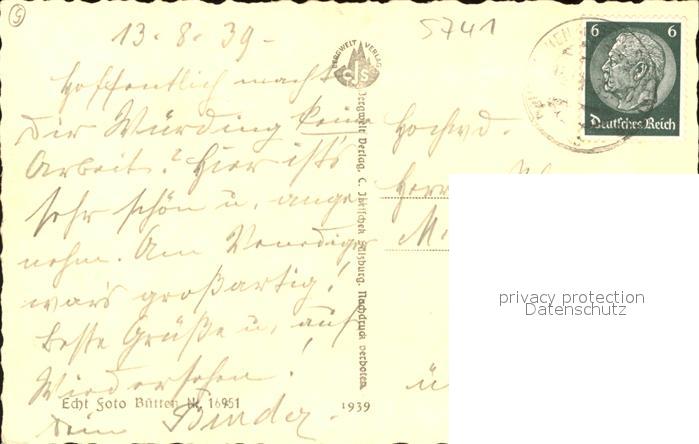 5
13.8.39-
5741
6 6
Deutsches Reich
BERGWELT VERLAG
CJS
Hoffentlich macht
Dir Würding keine
Arbeit? Hier ist's
sehr schön u. ange
nehm. Am Venediger
war's großartig!
Beste Grüße u. auf
Wiedersehen!
Dein Binder.
Echt Foto Bütten Nr. 16951
1939
Bergwelt Verlag, C. Jurischek Salzburg. Nachdruck verboten
Hochwd.
Herrn
M
ü
privacy protection
Datenschutz